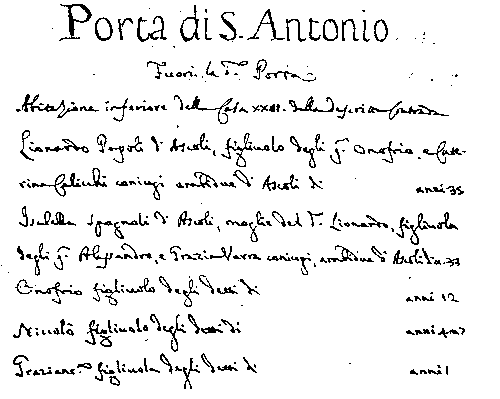 Porta di S. Antonio
Fuori la d.ª Porta
Abitazione inferiore della Casa XXII. della descritta Contrada
Lionardo Popoli d'Ascoli, figliuolo degli q.ᵐ Onofrio, e Cate-
rina coniugi ambidue d'Ascoli di anni 35
Isabella Spagnoli d'Ascoli, moglie del d.º Lionardo, figliuola
degli q.ᵐ Alessandro, e Grazia coniugi, ambidue d'Ascoli di a. 33
Onofrio figliuolo degli detti di anni 12
Niccolò figliuolo degli detti di anni 4
figliuola degli detti di anni 1